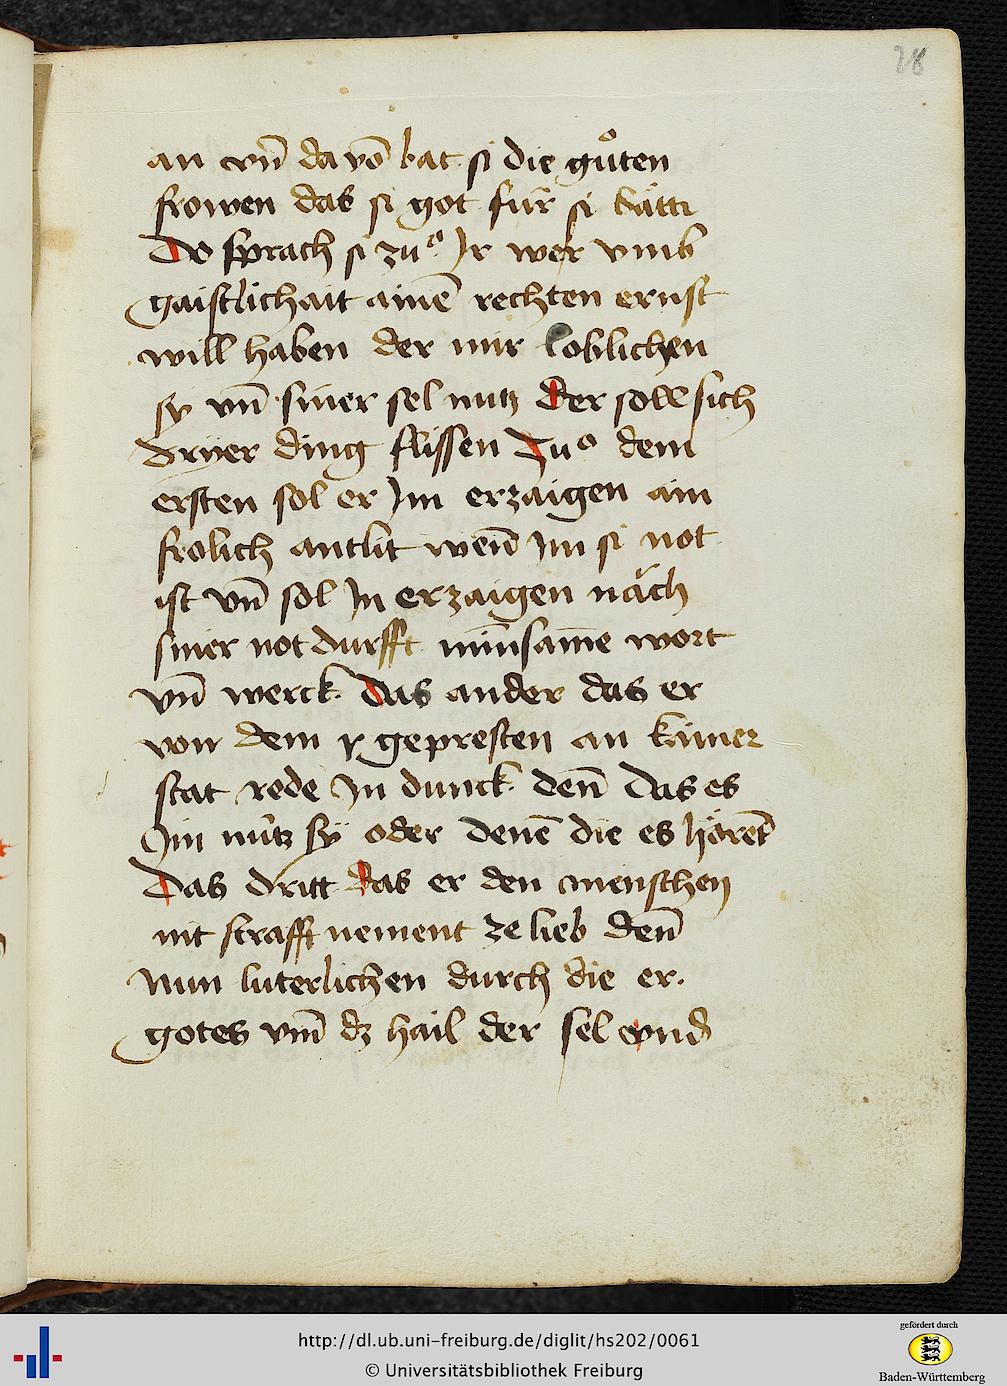 28
an vn̄ da vō bat si die gůten
frowen das si got für si bätti
Do sprach si zuͦ Jr wer vmb
gaistlichait ainē rechten ernst
will haben der mir loblichen
sy vn̄ siner sel nutz Der soll sich
dryer ding flissen Zuͦ dem
ersten sol er Jm erzaigen ain
frölich antlit wen̄ Jm si not
ist vn̄ sol Jn erzaigen näch
siner notdurfft min̄samē wort
vn̄ werck Das ander das er
von dem gepresten an kainer
stat rede Jn dunck den̄ das es
Jm nütz sÿ oder denē die es hörēt
Das dritt das er den menschen
nit strafft nement ze lieb den̄
Nun luterlichen durch die er
gotes vm̄ dz hail der sel vnd
http://dl.ub.uni-freiburg.de/diglit/hs202/0061
© Universitätsbibliothek Freiburg
gefördert durch
Baden-Württemberg